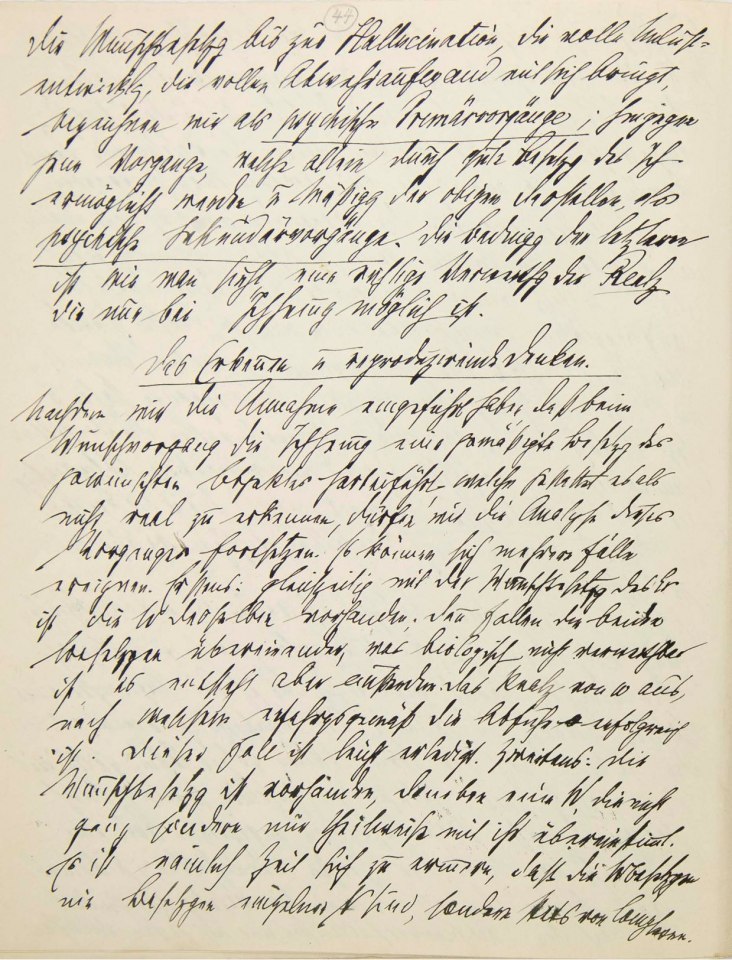 44
die Wunschbesetzg bis zur Hallucination, die volle Unlust-
entwicklg, die vollen Abwehraufwand mit sich bringt,
bezeichnen wir als psychische Primärvorgänge; hingegen
jene Vorgänge, welche allein durch gute Besetzg des Ich
ermöglicht werden u Mäßigg der obigen darstellen, als
psychische Sekundärvorgänge. Die Bedingg der letzteren
ist wie man sieht eine richtige Verwerthg der Realz
die nur bei Ichhemung möglich ist.
Das Erkennen u reproduzirende Denken.
Nachdem wir die Annahme eingeführt haben, daß beim
Wunschvorgang die Ichhemung eine gemäßigte Besetzg des
gewünschten Objektes herbeiführt, welche gestattet es als
nicht real zu erkennen, dürfen wir die Analyse dieses
Vorganges fortsetzen. Es können sich mehrere Fälle
ereignen. Erstens: gleichzeitig mit der Wunschbesetzg des Er
ist die W desselben vorhanden. Dann fallen die beiden
Besetzgen übereinander, was biologisch nicht verwerthbar
ist es entsteht aber außerdem das Realz von W aus,
nach welchem erfahrgsgemäß die Abfuhr erfolgreich
ist. Dieser Fall ist leicht erledigt. Zweitens: die
Wunschbesetzg ist vorhanden, daneben eine W die nicht
ganz sondern nur theilweise mit ihr übereinstimt.
Es ist nämlich Zeit sich zu erinern, daß die Wbesetzgen
nie Besetzgen einzelner N sind, sondern stets von Complexen.